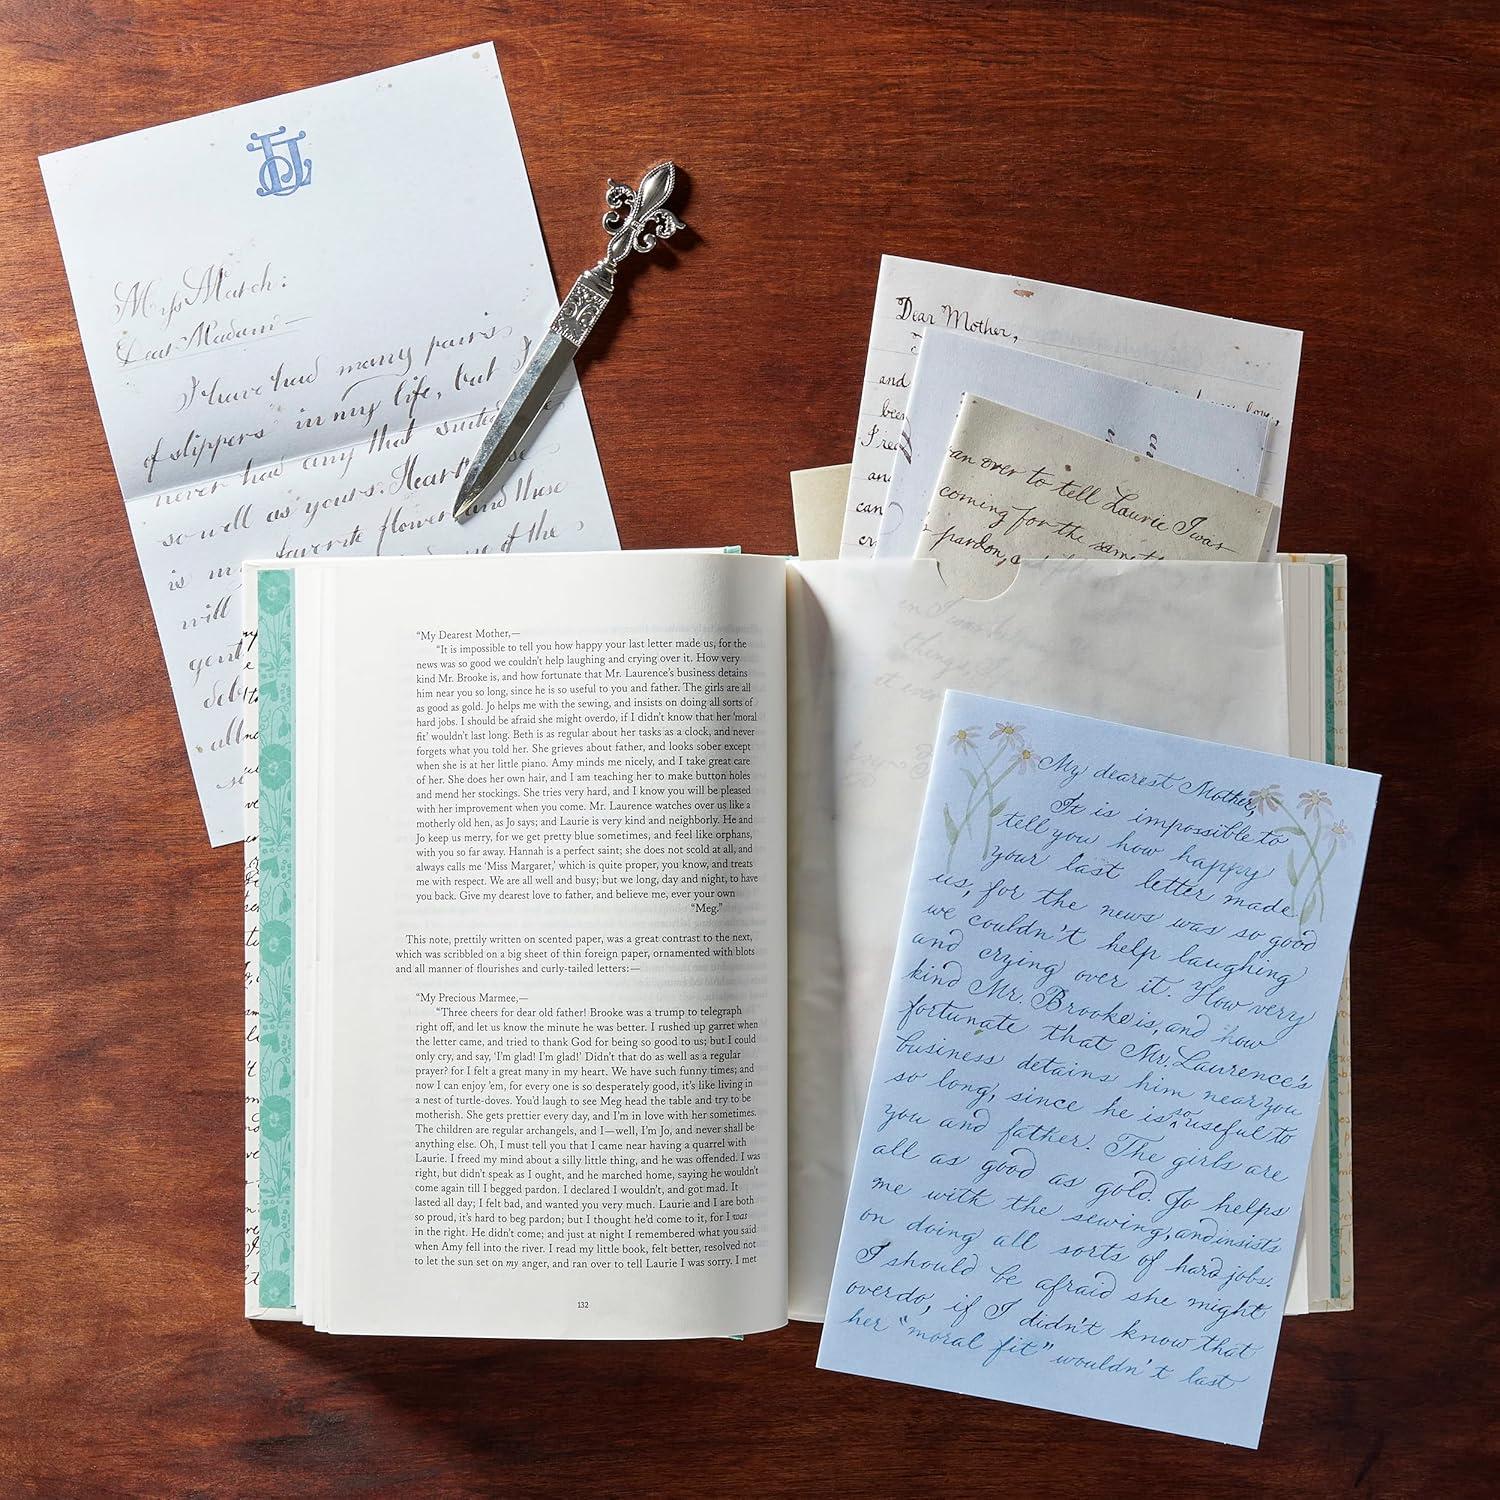 JL
Miss March:
Dear Madam—
I have had many pairs
of slippers in my life, but I
never had any that suited
so well as yours. Heart
favorite flower and these
is my
of the
will
gent
debt
Dear Mother,
and
been
I rea
and
can
an over to tell Laurie I was
coming for the
pardon,
"My Dearest Mother,—
"It is impossible to tell you how happy your last letter made us, for the
news was so good we couldn't help laughing and crying over it. How very
kind Mr. Brooke is, and how fortunate that Mr. Laurence's business detains
him near you so long, since he is so useful to you and father. The girls are all
as good as gold. Jo helps me with the sewing, and insists on doing all sorts of
hard jobs. I should be afraid she might overdo, if I didn't know that her 'moral
fit' wouldn't last long. Beth is as regular about her tasks as a clock, and never
forgets what you told her. She grieves about father, and looks sober except
when she is at her little piano. Amy minds me nicely, and I take great care
of her. She does her own hair, and I am teaching her to make button holes
and mend her stockings. She tries very hard, and I know you will be pleased
with her improvement when you come. Mr. Laurence watches over us like a
motherly old hen, as Jo says; and Laurie is very kind and neighborly. He and
Jo keep us merry, for we get pretty blue sometimes, and feel like orphans,
with you so far away. Hannah is a perfect saint; she does not scold at all, and
always calls me 'Miss Margaret,' which is quite proper, you know, and treats
me with respect. We are all well and busy; but we long, day and night, to have
you back. Give my dearest love to father, and believe me, ever your own
"Meg."
This note, prettily written on scented paper, was a great contrast to the next,
which was scribbled on a big sheet of thin foreign paper, ornamented with blots
and all manner of flourishes and curly-tailed letters:—
"My Precious Marmee,—
"Three cheers for dear old father! Brooke was a trump to telegraph
right off, and let us know the minute he was better. I rushed up garret when
the letter came, and tried to thank God for being so good to us; but I could
only cry, and say, 'I'm glad! I'm glad!' Didn't that do as well as a regular
prayer? for I felt a great many in my heart. We have such funny times; and
now I can enjoy 'em, for every one is so desperately good, it's like living in
a nest of turtle-doves. You'd laugh to see Meg head the table and try to be
motherish. She gets prettier every day, and I'm in love with her sometimes.
The children are regular archangels, and I—well, I'm Jo, and never shall be
anything else. Oh, I must tell you that I came near having a quarrel with
Laurie. I freed my mind about a silly little thing, and he was offended. I was
right, but didn't speak as I ought, and he marched home, saying he wouldn't
come again till I begged pardon. I declared I wouldn't, and got mad. It
lasted all day; I felt bad, and wanted you very much. Laurie and I are both
so proud, it's hard to beg pardon; but I thought he'd come to it, for I was
in the right. He didn't come; and just at night I remembered what you said
when Amy fell into the river. I read my little book, felt better, resolved not
to let the sun set on my anger, and ran over to tell Laurie I was sorry. I met
132
My dearest Mother,
It is impossible to
tell you how happy
your last letter made
us, for the news was so good
we couldn't help laughing
and crying over it. How very
kind Mr. Brooke is, and how
fortunate that Mr. Laurence's
business detains him near you
so long, since he is so useful to
you and father. The girls are
all as good as gold. Jo helps
me with the sewing, and insists
on doing all sorts of hard jobs.
I should be afraid she might
overdo, if I didn't know that
her "moral fit" wouldn't last